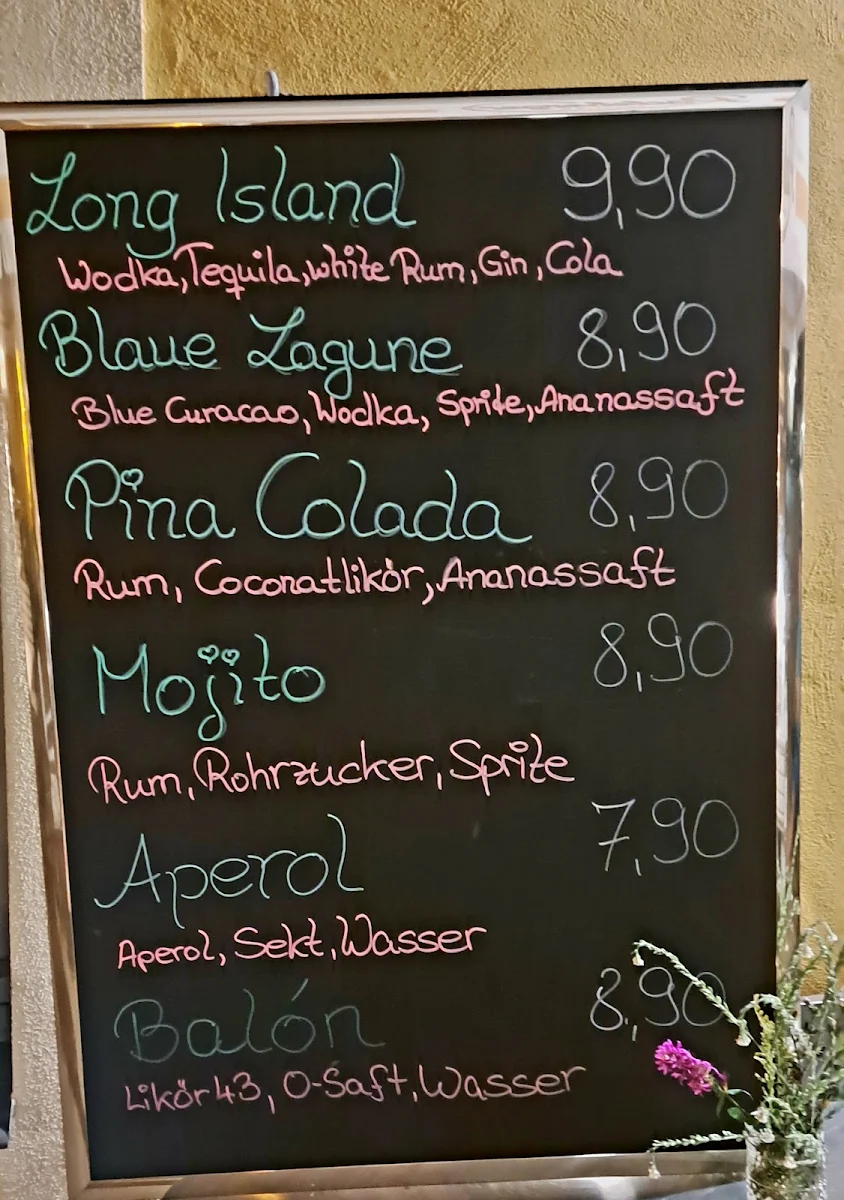 Long Island 9,90
Wodka, Tequila, white Rum, Gin, Cola
Blaue Lagune 8,90
Blue Curacao, Wodka, Sprite, Ananassaft
Pina Colada 8,90
Rum, Coconatlikör, Ananassaft
Mojito 8,90
Rum, Rohrzucker, Sprite
Aperol 7,90
Aperol, Sekt, Wasser
Balón 8,90
Likör 43, O-Saft, Wasser